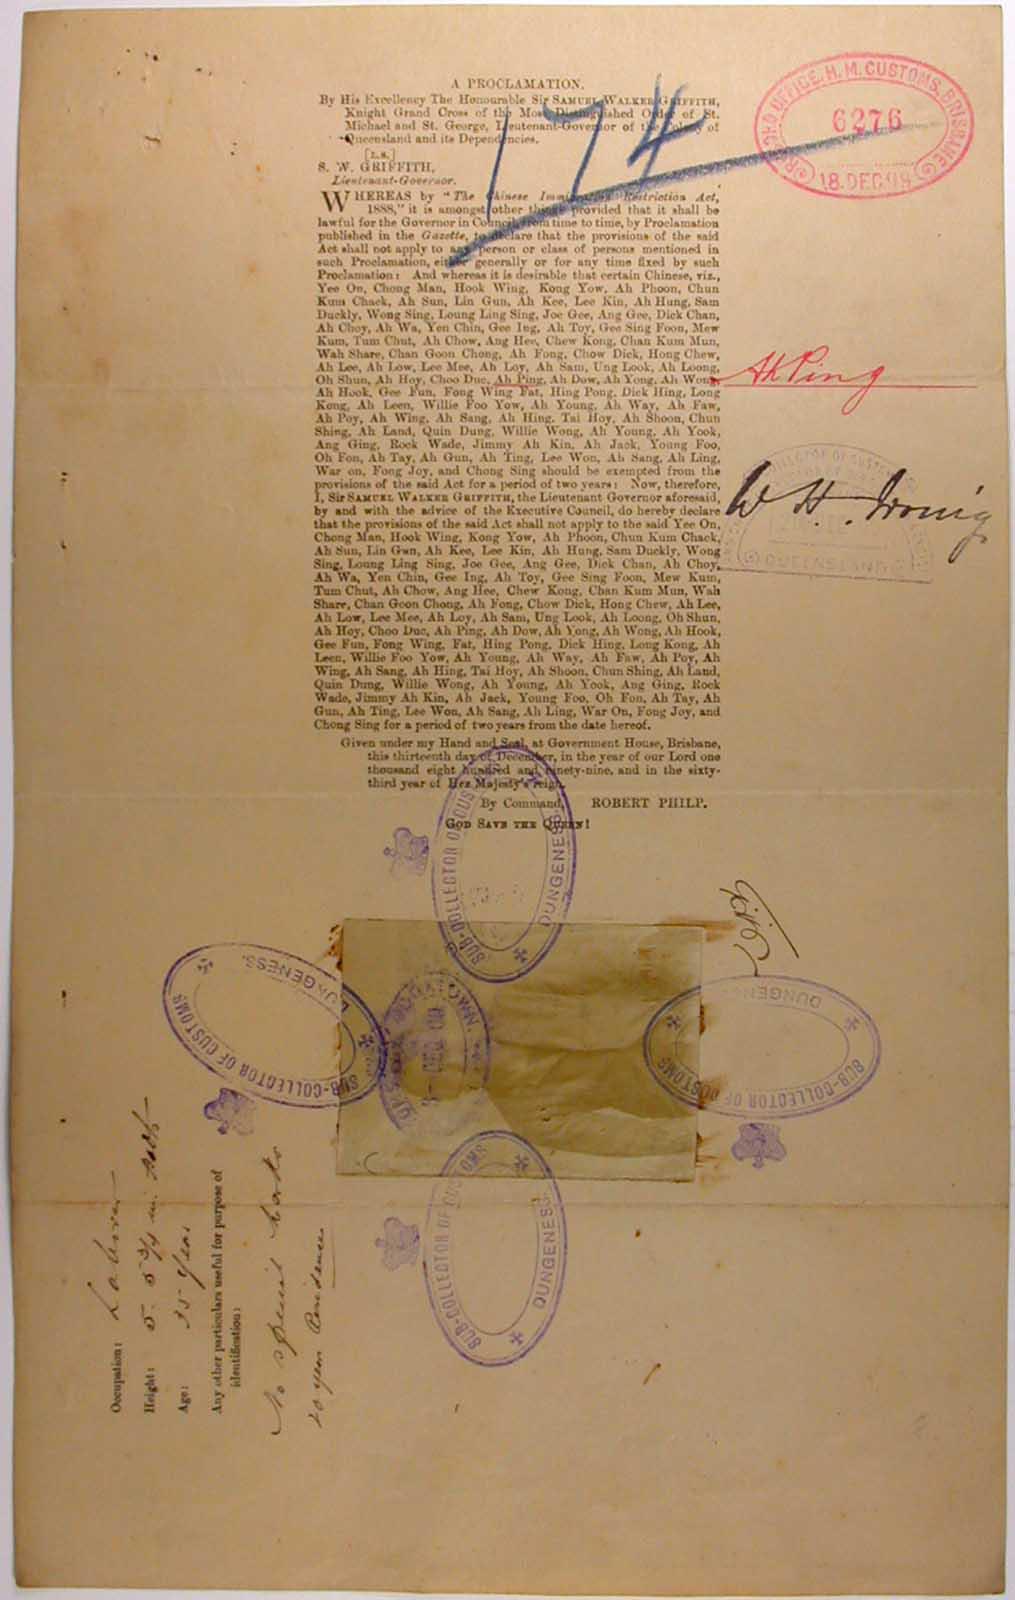 A PROCLAMATION.
By His Excellency The Honourable Sir SAMUEL WALKER GRIFFITH,
Knight Grand Cross of the Most Distinguished Order of St.
Michael and St. George, Lieutenant-Governor of the Colony of
Queensland and its Dependencies.
[L.S.]
S. W. GRIFFITH,
Lieutenant-Governor.
WHEREAS by "The Chinese Immigration Restriction Act,
1888," it is amongst other things provided that it shall be
lawful for the Governor in Council from time to time, by Proclamation
published in the Gazette, to declare that the provisions of the said
Act shall not apply to any person or class of persons mentioned in
such Proclamation, either generally or for any time fixed by such
Proclamation: And whereas it is desirable that certain Chinese, viz.,
Yee On, Chong Man, Hook Wing, Kong Yow, Ah Phoon, Chun
Kum Chack, Ah Sun, Lin Gun, Ah Kee, Lee Kin, Ah Hung, Sam
Duckly, Wong Sing, Loung Ling Sing, Joe Gee, Ang Gee, Dick Chan,
Ah Choy, Ah Wa, Yen Chin, Gee Ing, Ah Toy, Gee Sing Foon, Mew
Kum, Tum Chut, Ah Chow, Ang Hee, Chew Kong, Chan Kum Mun,
Wah Share, Chan Goon Chong, Ah Fong, Chow Dick, Hong Chew,
Ah Lee, Ah Low, Lee Mee, Ah Loy, Ah Sam, Ung Look, Ah Loong,
Oh Shun, Ah Hoy, Choo Duc, Ah Ping, Ah Dow, Ah Yong, Ah Wong,
Ah Hook, Gee Fun, Fong Wing Fat, Hing Pong, Dick Hing, Long
Kong, Ah Leen, Willie Foo Yow, Ah Young, Ah Way, Ah Faw,
Ah Poy, Ah Wing, Ah Sang, Ah Hing, Tai Hoy, Ah Shoon, Chun
Shing, Ah Land, Quin Dung, Willie Wong, Ah Young, Ah Yook,
Ang Ging, Rock Wade, Jimmy Ah Kin, Ah Jack, Young Foo,
Oh Fon, Ah Tay, Ah Gun, Ah Ting, Lee Won, Ah Sang, Ah Ling,
War on, Fong Joy, and Chong Sing should be exempted from the
provisions of the said Act for a period of two years: Now, therefore,
I, Sir SAMUEL WALKER GRIFFITH, the Lieutenant Governor aforesaid,
by and with the advice of the Executive Council, do hereby declare
that the provisions of the said Act shall not apply to the said Yee On,
Chong Man, Hook Wing, Kong Yow, Ah Phoon, Chun Kum Chack,
Ah Sun, Lin Gun, Ah Kee, Lee Kin, Ah Hung, Sam Duckly, Wong
Sing, Loung Ling Sing, Joe Gee, Ang Gee, Dick Chan, Ah Choy,
Ah Wa, Yen Chin, Gee Ing, Ah Toy, Gee Sing Foon, Mew Kum,
Tum Chut, Ah Chow, Ang Hee, Chew Kong, Chan Kum Mun, Wah
Share, Chan Goon Chong, Ah Fong, Chow Dick, Hong Chew, Ah Lee,
Ah Low, Lee Mee, Ah Loy, Ah Sam, Ung Look, Ah Loong, Oh Shun,
Ah Hoy, Choo Duc, Ah Ping, Ah Dow, Ah Yong, Ah Wong, Ah Hook,
Gee Fun, Fong Wing, Fat, Hing Pong, Dick Hing, Long Kong, Ah
Leen, Willie Foo Yow, Ah Young, Ah Way, Ah Faw, Ah Poy, Ah
Wing, Ah Sang, Ah Hing, Tai Hoy, Ah Shoon, Chun Shing, Ah Land,
Quin Dung, Willie Wong, Ah Young, Ah Yook, Ang Ging, Rock
Wade, Jimmy Ah Kin, Ah Jack, Young Foo, Oh Fon, Ah Tay, Ah
Gun, Ah Ting, Lee Won, Ah Sang, Ah Ling, War On, Fong Joy, and
Chong Sing for a period of two years from the date hereof.
Given under my Hand and Seal, at Government House, Brisbane,
this thirteenth day of December, in the year of our Lord one
thousand eight hundred and ninety-nine, and in the sixty-
third year of Her Majesty's reign.
By Command, ROBERT PHILP.
GOD SAVE THE QUEEN!
174
RECORD OFFICE, H. M. CUSTOMS, BRISBANE
6276
18. DEC. 98
Ah Ping
W. H. Irving
QUEENSLAND
SUB-COLLECTOR OF CUSTOMS
DUNGENESS.
SUB-COLLECTOR OF CUSTOMS
DUNGENESS.
SUB-COLLECTOR OF CUSTOMS
DUNGENESS.
SUB-COLLECTOR OF CUSTOMS
DUNGENESS.
Occupation: Labourer
Height: 5. 5 3/4 in.
Age: 35 Years
Any other particulars useful for purpose of
identification:
No Special Marks
20 years Residence